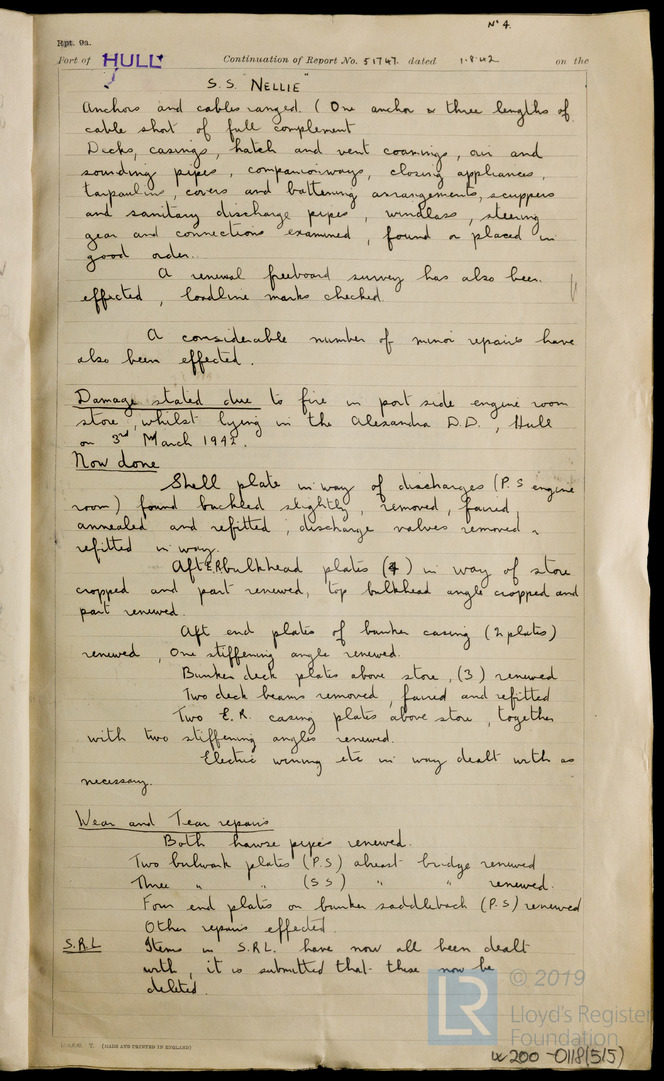 No 4.
Rpt. 9a.
Port of HULL Continuation of Report No. 51747. dated 1.8.42 on the
S.S. "NELLIE"
Anchors and cables ranged. (One anchor & three lengths of
cable short of full complement
Decks, casings, hatch and vent coamings, air and
sounding pipes, companionways, closing appliances,
tarpaulins, covers and battening arrangements, scuppers
and sanitary discharge pipes, windlass, steering
gear and connections examined, found or placed in
good order.
A renewal freeboard survey has also been
effected, loadline marks checked.
A considerable number of minor repairs have
also been effected.
Damage stated due to fire in port side engine room
store, whilst lying in the Alexandra D.D., Hull
on 3rd March 1942.
Now done
Shell plate in way of discharges (P.S engine
room) found buckled slightly, removed, faired,
annealed and refitted, discharge valves removed &
refitted in way.
Aft E.R. bulkhead plates (4) in way of store
cropped and part renewed, top bulkhead angle cropped and
part renewed.
Aft end plates of bunker casing (2 plates)
renewed, One stiffening angle renewed.
Bunker deck plates above store, (3) renewed
Two deck beams removed, faired and refitted
Two E.R. casing plates above store, together
with two stiffening angles renewed.
Electric wiring etc in way dealt with as
necessary.
Wear and Tear repairs
Both hawse pipes renewed.
Two bulwark plates (P.S) abreast bridge renewed
Three " " (S S) " " renewed.
Four end plates on bunker saddleback (P.S) renewed
Other repairs effected
S.R.L Items in S.R.L. have now all been dealt
with, it is submitted that these now be
deleted.
© 2019
LR Lloyd's Register
Foundation
T. (MADE AND PRINTED IN ENGLAND)
W200-0118(5/5)